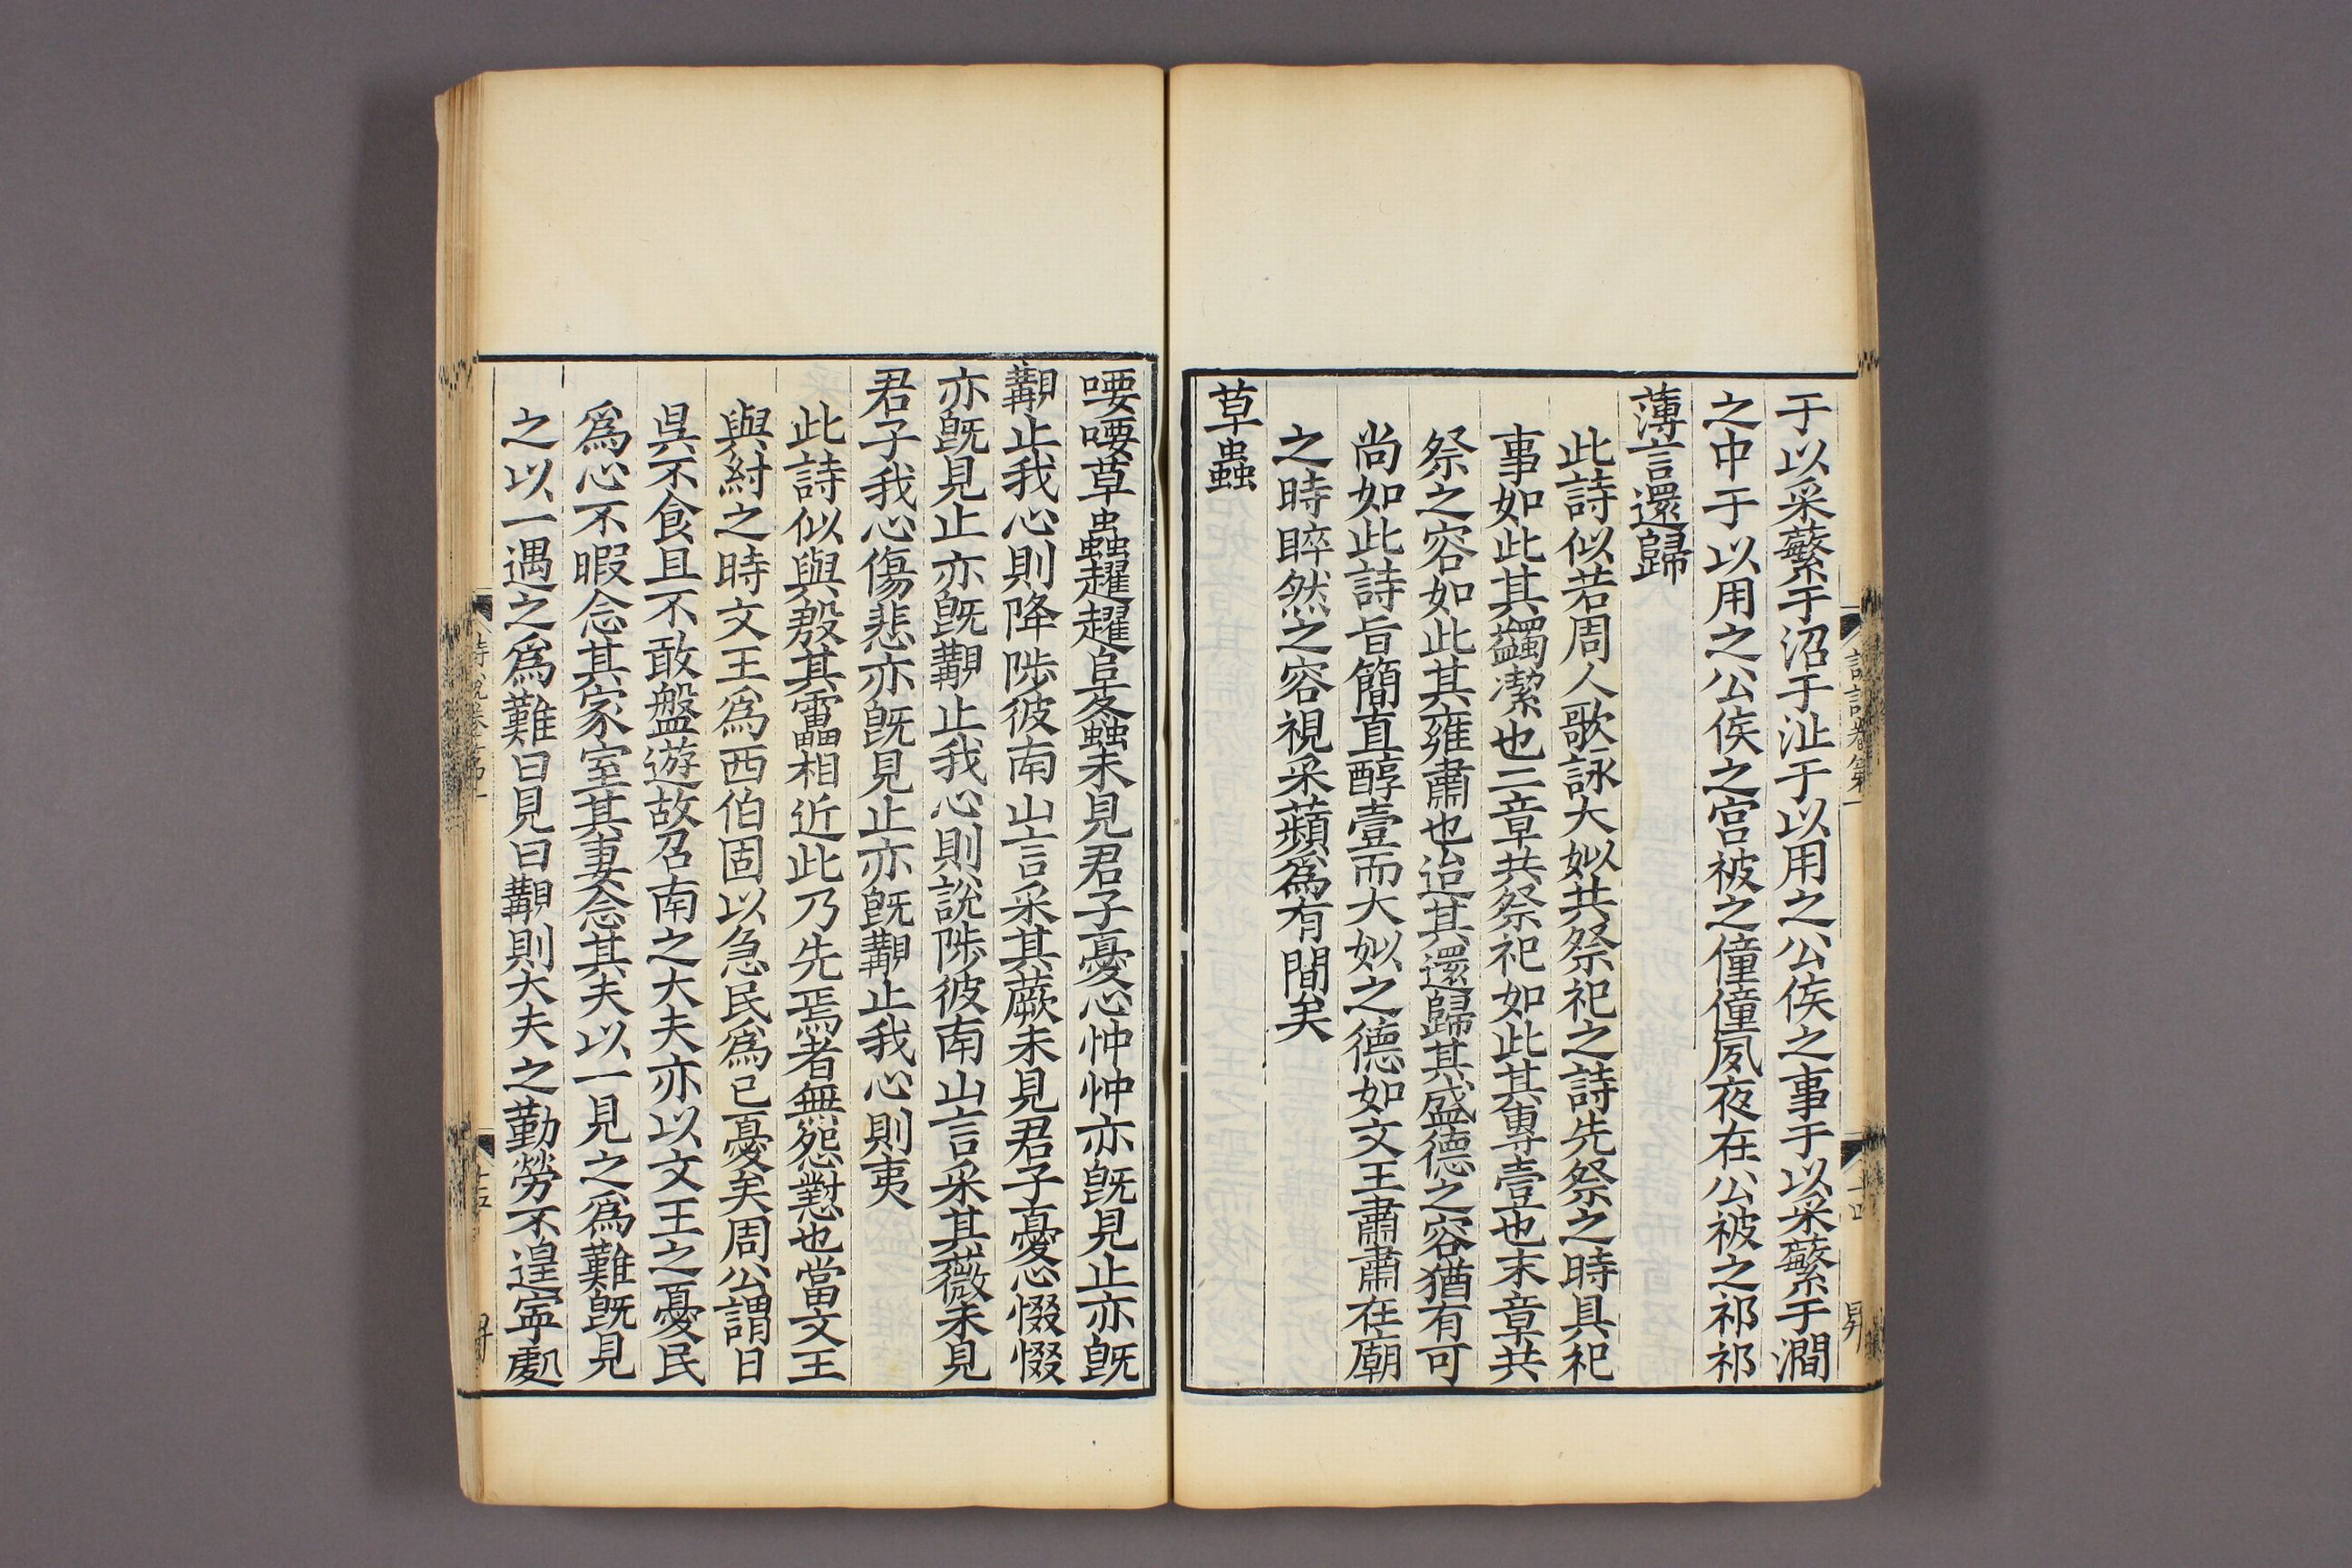 于以采蘩于沼于沚于以用之公侯之事于以采蘩于澗
之中于以用之公侯之宮被之僮僮夙夜在公被之祁祁
薄言還歸
此詩似若周人歌詠大姒共祭祀之詩先祭之時具祀
事如此其蠲潔也二章共祭祀如此其專壹也末章共
祭之容如此其雍肅也迨其還歸其盛德之容猶有可
尚如此詩旨簡直醇壹而大姒之德如文王肅肅在廟
之時睟然之容視采蘋爲有間矣
草蟲
喓喓草蟲趯趯阜螽未見君子憂心忡忡亦旣見止亦旣
覯止我心則降陟彼南山言采其蕨未見君子憂心惙惙
亦旣見止亦旣覯止我心則說陟彼南山言采其薇未見
君子我心傷悲亦旣見止亦旣覯止我心則夷
此詩似與殷其靁相近此乃先焉者無怨懟也當文王
與紂之時文王爲西伯固以急民爲已憂矣周公謂日
昃不食且不敢盤遊故召南之大夫亦以文王之憂民
爲心不暇念其家室其妻念其夫以一見之爲難旣見
之以一遇之爲難曰見曰覯則大夫之勤勞不遑寧處
詩說卷第一
十五